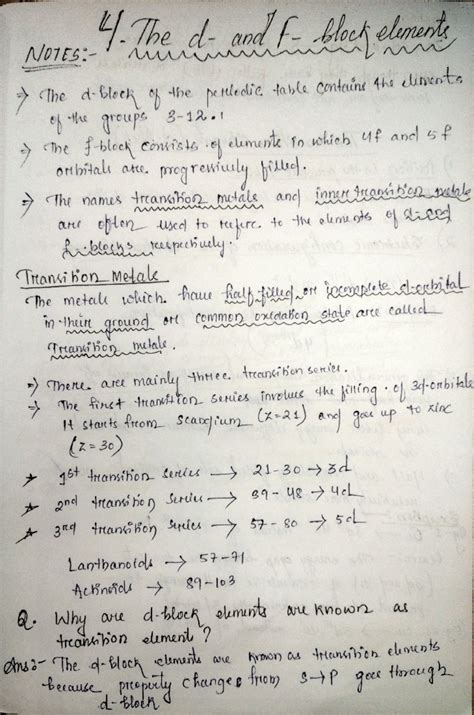 4. The d- and f- block elements
NOTES:-
⇒ The d-block of the periodic table contains the elements
of the groups 3-12.
⇒ The f-block consists of elements in which 4f and 5f
orbitals are progressively filled.
⇒ The names transition metals and inner transition metals
are often used to refer to the elements of d-and
f-blocks respectively.
Transition Metals
The metals which have half filled or incomplete d-orbital
in their ground or common oxidation state are called
Transition metals.
⇒ There are mainly three transition series.
⇒ The first transition series involves the filling of 3d-orbitals
It starts from scandium (Z=21) and goes up to zinc
(Z=30)
★ 1st transition series → 21-30 → 3d
★ 2nd transition series → 39-48 → 4d
★ 3rd transition series → 57-80 → 5d
Lanthanoids → 57-71
Actinoids → 89-103
Q. Why are d-block elements are known as
transition elements?
Ans:- The d-block elements are known as transition elements
because property changes from S→P goes through
d-block